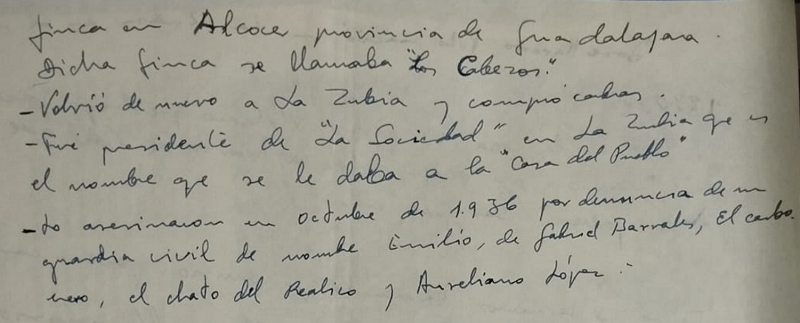 finca en Alcocer provincia de Guadalajara.
Dicha finca se llamaba "Los Cabezos."
- Volvió de nuevo a La Zubia y compró cabras.
- Fué presidente de "La Sociedad" en La Zubia que es
el nombre que se le daba a la "Casa del Pueblo"
- Lo asesinaron en octubre de 1.936 por denuncia de un
guardia civil de nombre Emilio, de Gabriel Barrales, El carbo-
nero, el chato del Realico y Aureliano López.-